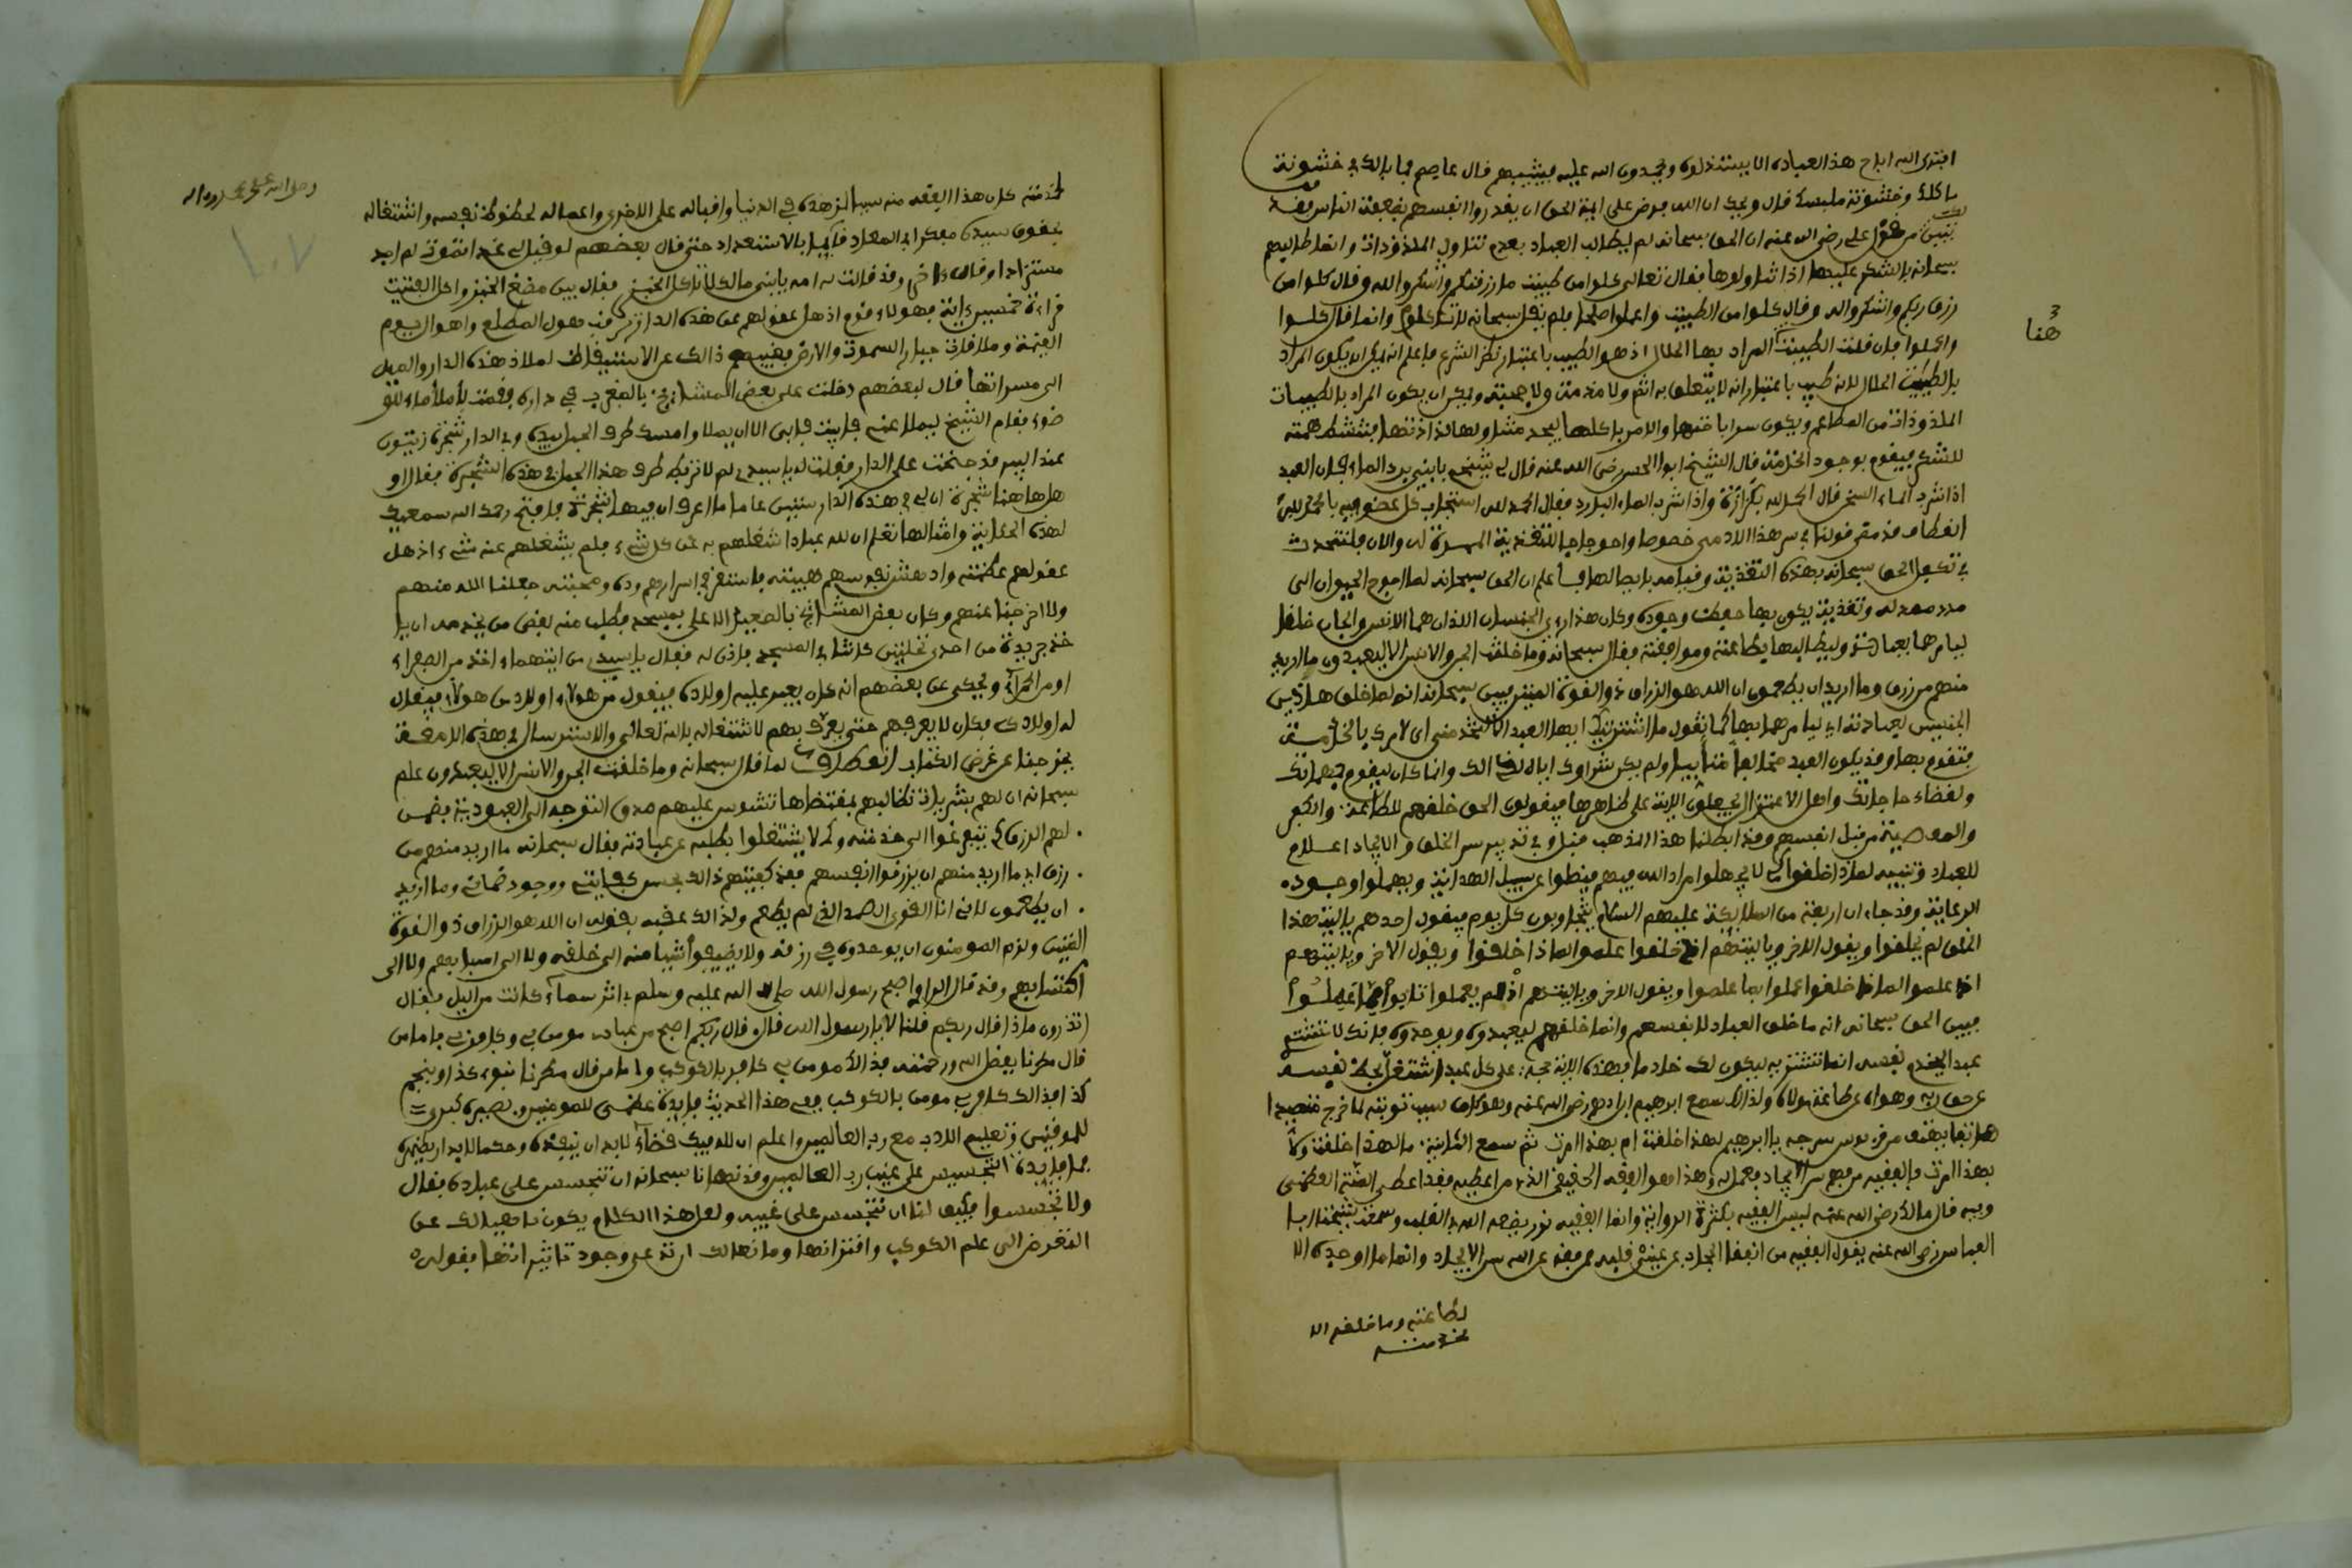 افترى الله اباح هذا العباده الا ليبتذلوه ويحمدون الله عليه فيثيبهم قال عاصم فما بالك في خشونة
ماكلك وخشونة ملبسك قال ويحك ان الله فرض على ايمة الحق ان يقدروا انفسهم بضعفة الناس فقد
تبين من قول علي رضي الله عنه ان الحق سبحانه لم يطالب العباد بعدم تناول الملذوذات وانما طالبهم
سبحانه بالشكر عليها اذا تناولوها فقال تعالى كلوا من طيبت ما رزقنكم واشكروا لله وقال كلوا من
رزق ربكم واشكروا له وقال كلوا من الطيبت واعملوا صلحا ولم يقل سبحانه لا تاكلوا وانما قال كلوا
واعملوا فان قلت الطيبت المراد بها الحلال اذ هو الطيب باعتبار نظر الشرع فاعلم انه يمكن ان يكون المراد
بالطيبت الحلال لانه طيب باعتبار انه لا يتعلق به اثم ولا مذمة ولا حجبة ويمكن ان يكون المراد بالطيبات
الملذوذات من المطاعم ويكون سر اباحتها والامر باكلها ليجد متناولها لذاذتها فتنشط همته
للشكر فيقوم بوجود الخدمة قال الشيخ ابوا الحسن رضي الله عنه قال لي شيخي يابني برد الماء فان العبد
اذا شرب الماء السخن قال الحمد لله بكزازة واذا شرب الماء البارد فقال الحمد لله استجاب كل عضو فيه بالحمد لله
انعطاف قد مضى قولنا في سر هذا الادمي خصوصا واحواجها للتغذية الممدة له والان فلنتحدث
في تكفل الحق سبحانه بهذه التغذية وقيامه بايصالها فاعلم ان الحق سبحانه لما احوج الحيوان الى
مدد ممد له وتغذية يكون بها حفظ وجوده وكان هذان الجنسان اللذان هما الانس والجان خلقا
ليامرهما بعبادته وليطالبها بطاعته وموافقته فقال سبحانه وما خلقت الجن والانس الا ليعبدون ما اريد
منهم من رزق وما اريد ان يطعمون ان الله هو الرزاق ذو القوة المتين فبين سبحانه انه لما خلق هاذين
الجنسين لعبادته اي ليامرهما بها كما تقول ما اشتريتك ايها العبد الا لتخدمني اي لامرك بالخدمة
فتقوم بها وقد يكون العبد مخالفا متابيا ولم يكن شراوك اياه لذالك وانما كان ليقوم بمهماتك
ولقضاء حاجاتك واهل الاعتزال يحملون الاية على ظاهرها فيقولون الحق خلقهم للطاعة والكفر
والمعصية من قبل انفسهم وقد ابطلنا هذا المذهب قبل وفي تدبير سر الخلق والايجاد اعلام
للعباد وتنبيه لماذا خلقوا كي لا يجهلوا مراد الله فيهم فيضلوا عن سبيل الهداية ويهملوا وجود
الرعاية وقد جاء ان اربعة من الملايكة عليهم السلام يتجاوبون كل يوم فيقول احدهم ياليت هذا
الخلق لم يخلقوا ويقول الاخر وياليتهم اذ خلقوا علموا لماذا خلقوا ويقول الاخر وياليتهم
اذ علموا لماذا خلقوا عملوا بما علموا ويقول الاخر وياليتهم اذ لم يعملوا تابوا مما عملوا
فبين الحق سبحانه انه ما خلق العباد لانفسهم وانما خلقهم ليعبدوه ويوحدوه فانك لا تشتري
عبدا ليخدم نفسه انما تشتريه ليكون لك خادما فهذه الاية حجة على كل عبد اشتغل بحظ نفسه
عن حق ربه وهواه عن طاعة مولاه ولذالك سمع ابراهيم بن ادهم رضي الله عنه وهو كان سبب توبته لما خرج متصيدا
هاتفا يهتف من قربوس سرجه يا ابرهيم لهذا خلقت ام بهذا امرت ثم سمع الثانية ما لهذا خلقت ولا
بهذا امرت فالفقيه من فهم سر الايجاد فعمل له وهذا هو الفقه الحقيقي الذي من اعطيه فقد اعطي المنة العظمى
وفيه قال مالك رضي الله عنه ليس الفقيه بكثرة الرواية وانما الفقه نور يضعه الله في القلب وسمعت شيخنا ابا
العباس رضي الله عنه يقول الفقيه من انفقا الحجاب عن عيني قلبه فمن فقه عن الله سر الايجاد وانما ما اوجده الا
لطاعته وما خلقه الا
لخدمته
هنا
لخدمته كان هذا الفقه منه سببا لزهده في الدنيا واقباله على الاخرى واهماله لحظوظ نفسه واشتغاله
بحقوق سيده مفكرا في المعاد قائما بالاستعداد حتى قال بعضهم لو قيل لي غدا تموت لم اجد
مستزادا وقال اخر وقد قالت له امه يابني مالك لا تاكل الخبز فقال بين مضغ الخبز واكل الفتيت
قراءة خمسين اية فهولاء قوم اذهل عقولهم عن هذه الدار ترقب هول المطلع واهوال يوم
القيمة وملاقات جبار السموت والارض فغيبهم ذالك عن الاستيقاظ لملاذ هذه الدار والميل
الى مسراتها قال بعضهم دخلت على بعض المشايخ بالمغرب في داره فقمت لاملأ ماء للو
ضوء فقام الشيخ ليملا عني فابيت فابى الا ان يملا وامسك طرف الحبل بيده وفي الدار شجرة زيتون
عند البير قد جنحت على الدار فقلت له ياسيدي لم لا تربط طرف هذا الحبل في هذه الشجرة فقال او
هاهنا شجرة ان لي في هذه الدار ستين عاما ما اعرف ان فيها شجرة فافتح رحمك الله سمعك
لهذه الحكاية وامثالها تعلم ان لله عبادا شغلهم به عن كل شيء ولم يشغلهم عنه شيء اذهل
عقولهم عظمته وادهش نفوسهم هيبته فاستقر في اسرارهم وده ومحبته جعلنا الله منهم
ولا اخرجنا عنهم وكان بعض المشايخ بالصعيد الاعلى بمسجد فطلب منه بعض من يخدمه ان يا
خذ جريدة من احدى نخلتين كانتا في المسجد فاذن له فقال ياسيدي من ايتهما اخذ من الصفراء
او من الحمراء ويحكى عن بعضهم انه كان يعبر عليه اولاده فيقول من هولاء اولاد من هولاء فيقال
له اولادك فكان لا يعرفهم حتى يعرف بهم لاشتغاله بالله تعالى والاسترسال في هذه اللمعة
يخرجنا عن غرض الكتاب انعطاف لما قال سبحانه وما خلقت الجن والانس الا ليعبدون علم
سبحانه ان لهم بشريات تطالبهم بمقتضاها تشوش عليهم صدق التوجه الى العبودية فضمن
لهم الرزق كي يتفرغوا الى خدمته وكي لا يشتغلوا بطلبه عن عبادته فقال سبحانه ما اريد منهم من
رزق اي ما اريد منهم ان يرزقوا انفسهم فقد كفيتهم ذالك بحسن كفايتي ووجود ضماني وما اريد
ان يطعمون لاني انا القوي الصمد الذي لم يطعم ولذالك عقبه بقوله ان الله هو الرزاق ذو القوة
المتين ولزم المومنون ان يوحدوه في رزقه ولا يضيفوا شيا منه الى خلقه ولا الى اسبابهم ولا الى
اكتسابهم وقد قال الراوي اصبح رسول الله صلى الله عليه وسلم في اثر سماء كانت من اليل فقال
اتدرون ماذا قال ربكم قلنا لا يا رسول الله قال قال ربكم اصبح من عبادي مومن بي وكافر بي فاما من
قال مطرنا بفضل الله ورحمته فذالك مومن بي كافر بالكوكب واما من قال مطرنا بنوء كذا ونجم
كذا فذالك كافر بي مومن بالكوكب ففي هذا الحديث فايدة عظمى للمومنين وبصيرة كبرى
للموقنين وتعليم الادب مع رب العالمين واعلم ان لله فيك قضاء لا بد ان ينفذه وحكما لا بد ان يظهره
فما فايدة التجسيس على غيب رب العالمين وقد نهانا سبحانه ان نتجسس على عباده فقال
ولا تجسسوا فكيف لنا ان نتجسس على غيبه ولعل هذا الكلام يكون ناهيا لك عن
التعرض الى علم الكوكب واقتراناتها ومانعا لك ان تدعي وجود تاثيراتها بقوله
وصلى الله على محمد واله
١٠٧